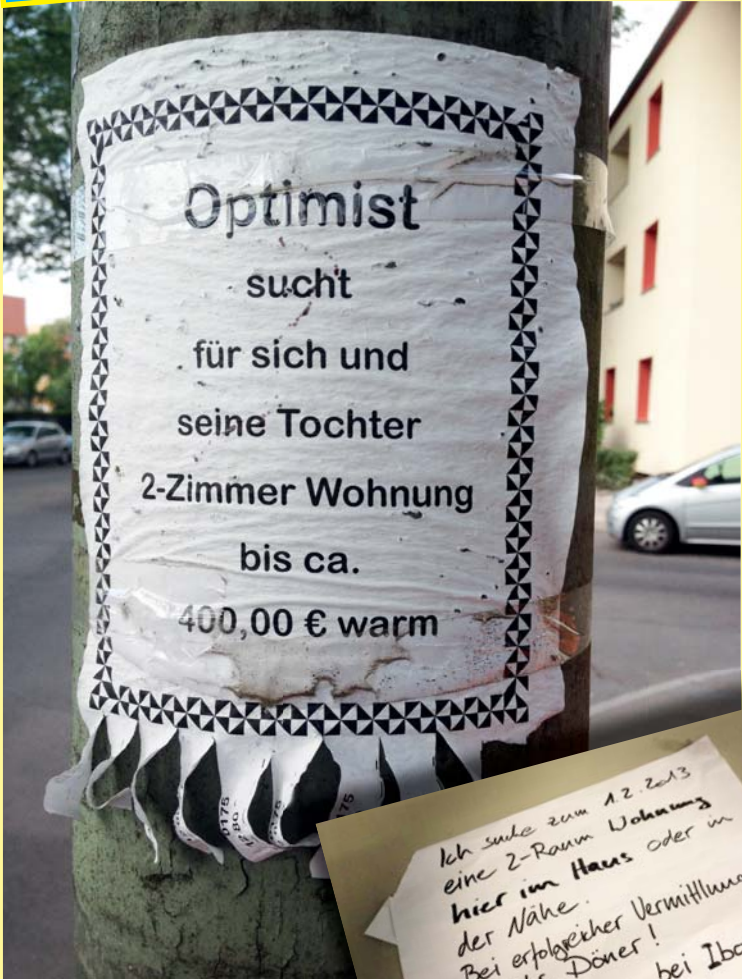 Optimist
sucht
für sich und
seine Tochter
2-Zimmer Wohnung
bis ca.
400,00 € warm
0175
Ich suche zum 1.2.2013
eine 2-Raum Wohnung
hier im Haus oder in
der Nähe.
Bei erfolgreicher Vermittlung
Döner!
bei Ibo